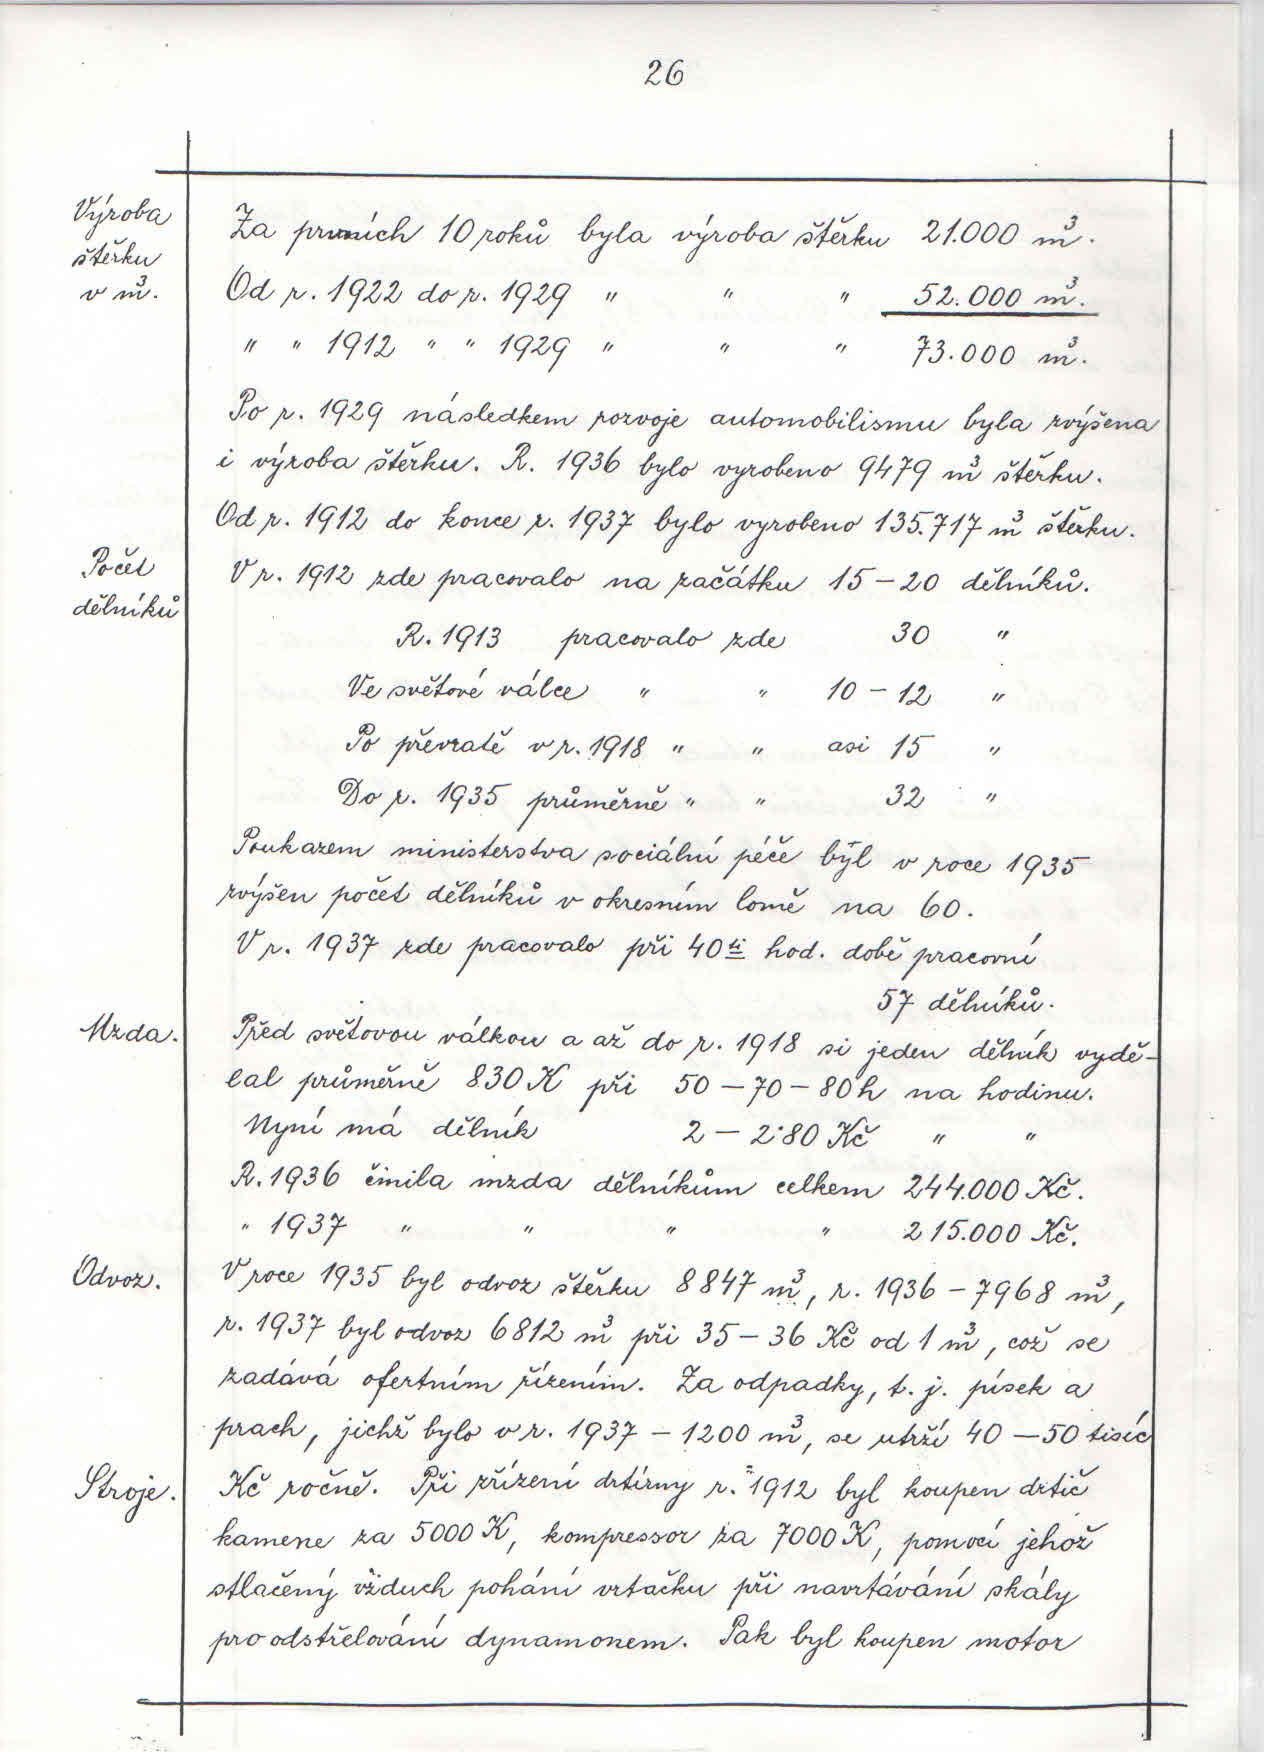 26
Výroba
štěrku
v m³.
Za prvních 10 roků byla výroba štěrku 21.000 m³.
Od r. 1922 do r. 1929 " " " 52.000 m³.
" " 1912 " " 1929 " " " 73.000 m³.
Po r. 1929 následkem rozvoje automobilismu byla zvýšena
i výroba štěrku. R. 1936 bylo vyrobeno 9479 m³ štěrku.
Od r. 1912 do konce r. 1937 bylo vyrobeno 135.717 m³ štěrku.
Počet
dělníků
V r. 1912 zde pracovalo na začátku 15 – 20 dělníků.
R. 1913 pracovalo zde 30 "
Ve světové válce " " 10 – 12 "
Po převratě v r. 1918 " " asi 15 "
Do r. 1935 průměrně " " 32 "
Poukazem ministerstva sociální péče byl v roce 1935
zvýšen počet dělníků v okresním lomě na 60.
V r. 1937 zde pracovalo při 40ti hod. době pracovní
57 dělníků.
Mzda.
Před světovou válkou a až do r. 1918 si jeden dělník vydě-
lal průměrně 830 K při 50 – 70 – 80 h na hodinu.
Nyní má dělník 2 – 2·80 Kč " "
R. 1936 činila mzda dělníkům celkem 244.000 Kč.
" 1937 " " " " 215.000 Kč.
Odvoz.
V roce 1935 byl odvoz štěrku 8847 m³, r. 1936 – 7968 m³,
r. 1937 byl odvoz 6812 m³ při 35 – 36 Kč od 1 m³, což se
zadává ofertním řízením. Za odpadky, t. j. písek a
prach, jichž bylo v r. 1937 – 1200 m³, se utrží 40 – 50 tisíc
Stroje.
Kč ročně. Při zřízení drtírny r. 1912 byl koupen drtič
kamene za 5000 K, kompressor za 7000 K, pomocí jehož
stlačený vzduch pohání vrtačku při navrtávání skály
pro odstřelování dynamonem. Pak byl koupen motor